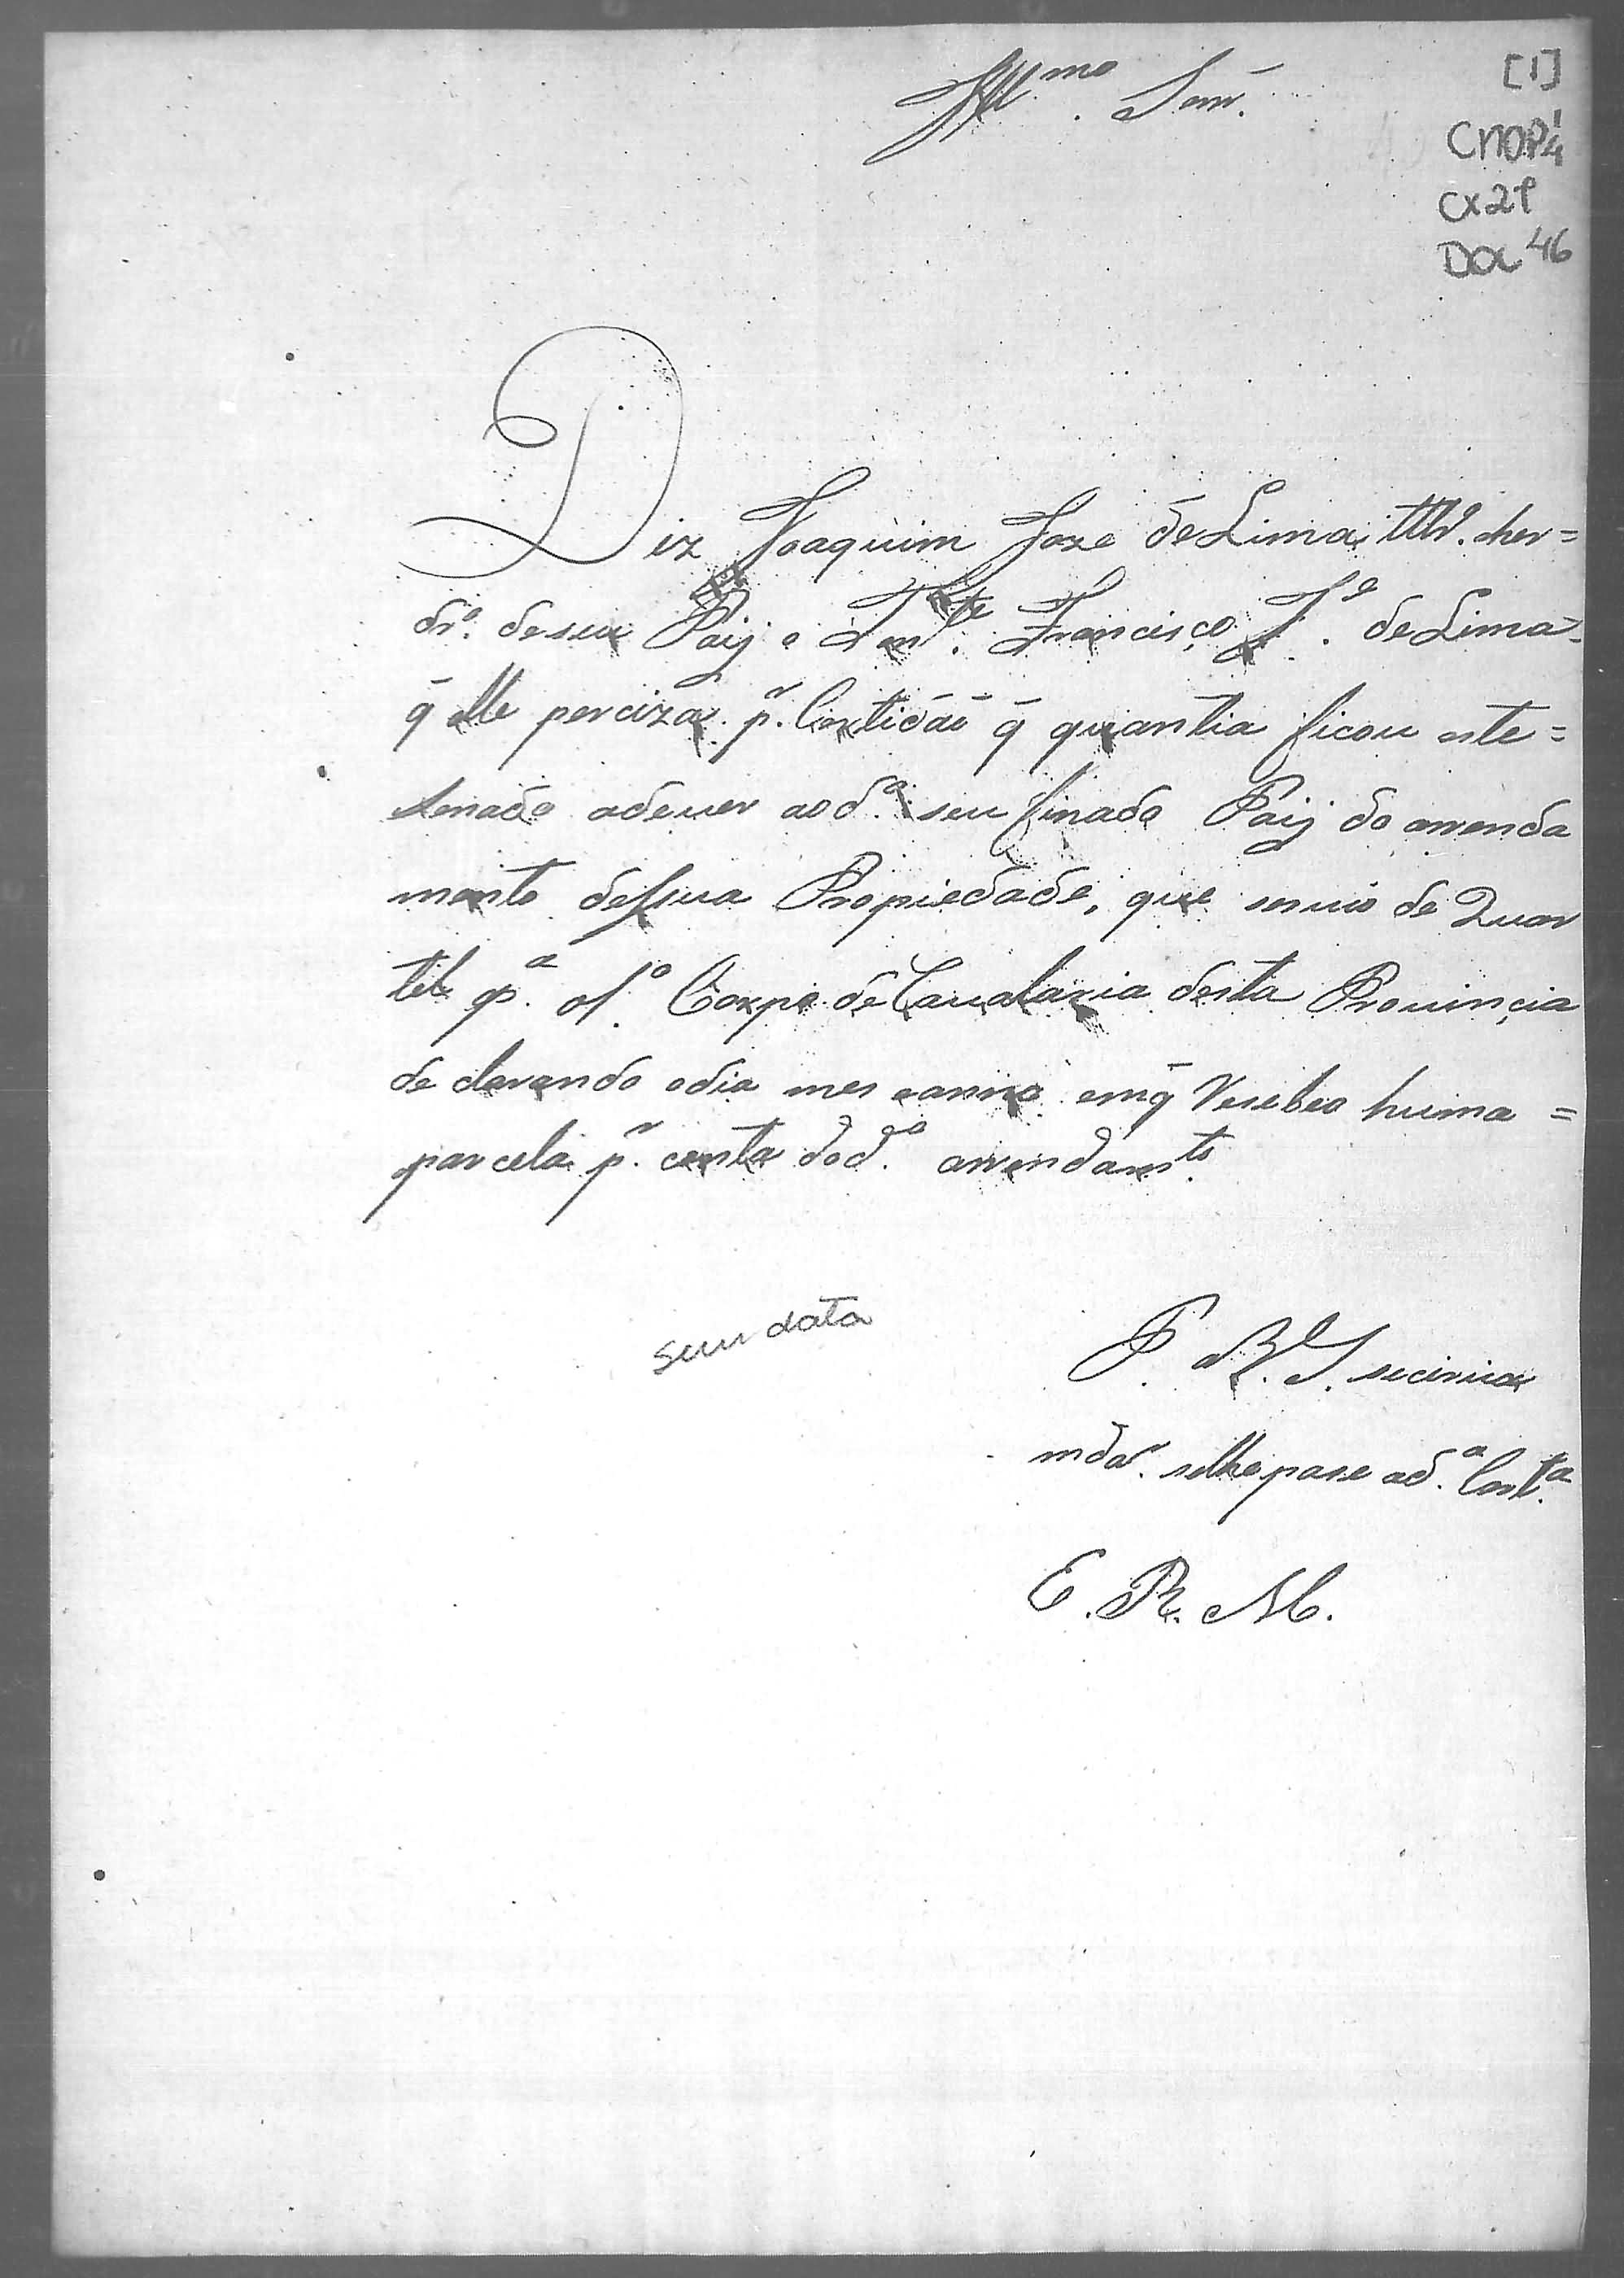 Illmo. Senr.
[1]
CMOP
CX 21
DOC 46
Diz Joaquim Joze de Lima, her=
dro. de seu Paij o Tente. Francisco Je. de Lima
q̃ elle perciza pr. Certidão q̃ quantia ficou este=
Senado adever aodo. seu finado Paij do arrenda
mento dessua Propiedade, que servio de Quar
tel pa. o 1o Corpo de Cavalaria desta Provincia
declarando odia mes eanno emq̃ Resebeo huma=
parcela pr. conta dodo. arrendamto.
sem data
P. a V. S. secirva
mdar. selhe pase ada. Certa.
E. R. M.